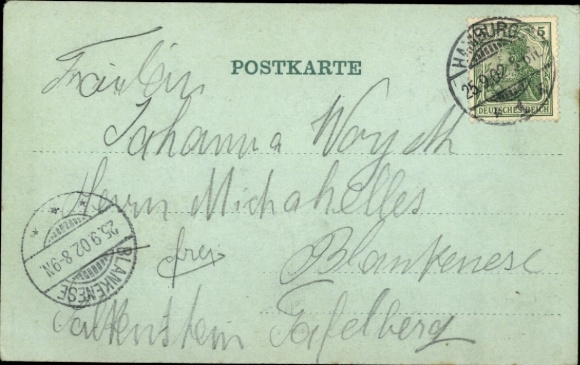 HAMBURG
5
25.9.02
DEUTSCHES REICH
POSTKARTE
Fräulein
Johanna
Herrn Michahelles
frei
Blankenese
Falkenstein Tafelberg
BLANKENESE
25.9.02 8-9N.